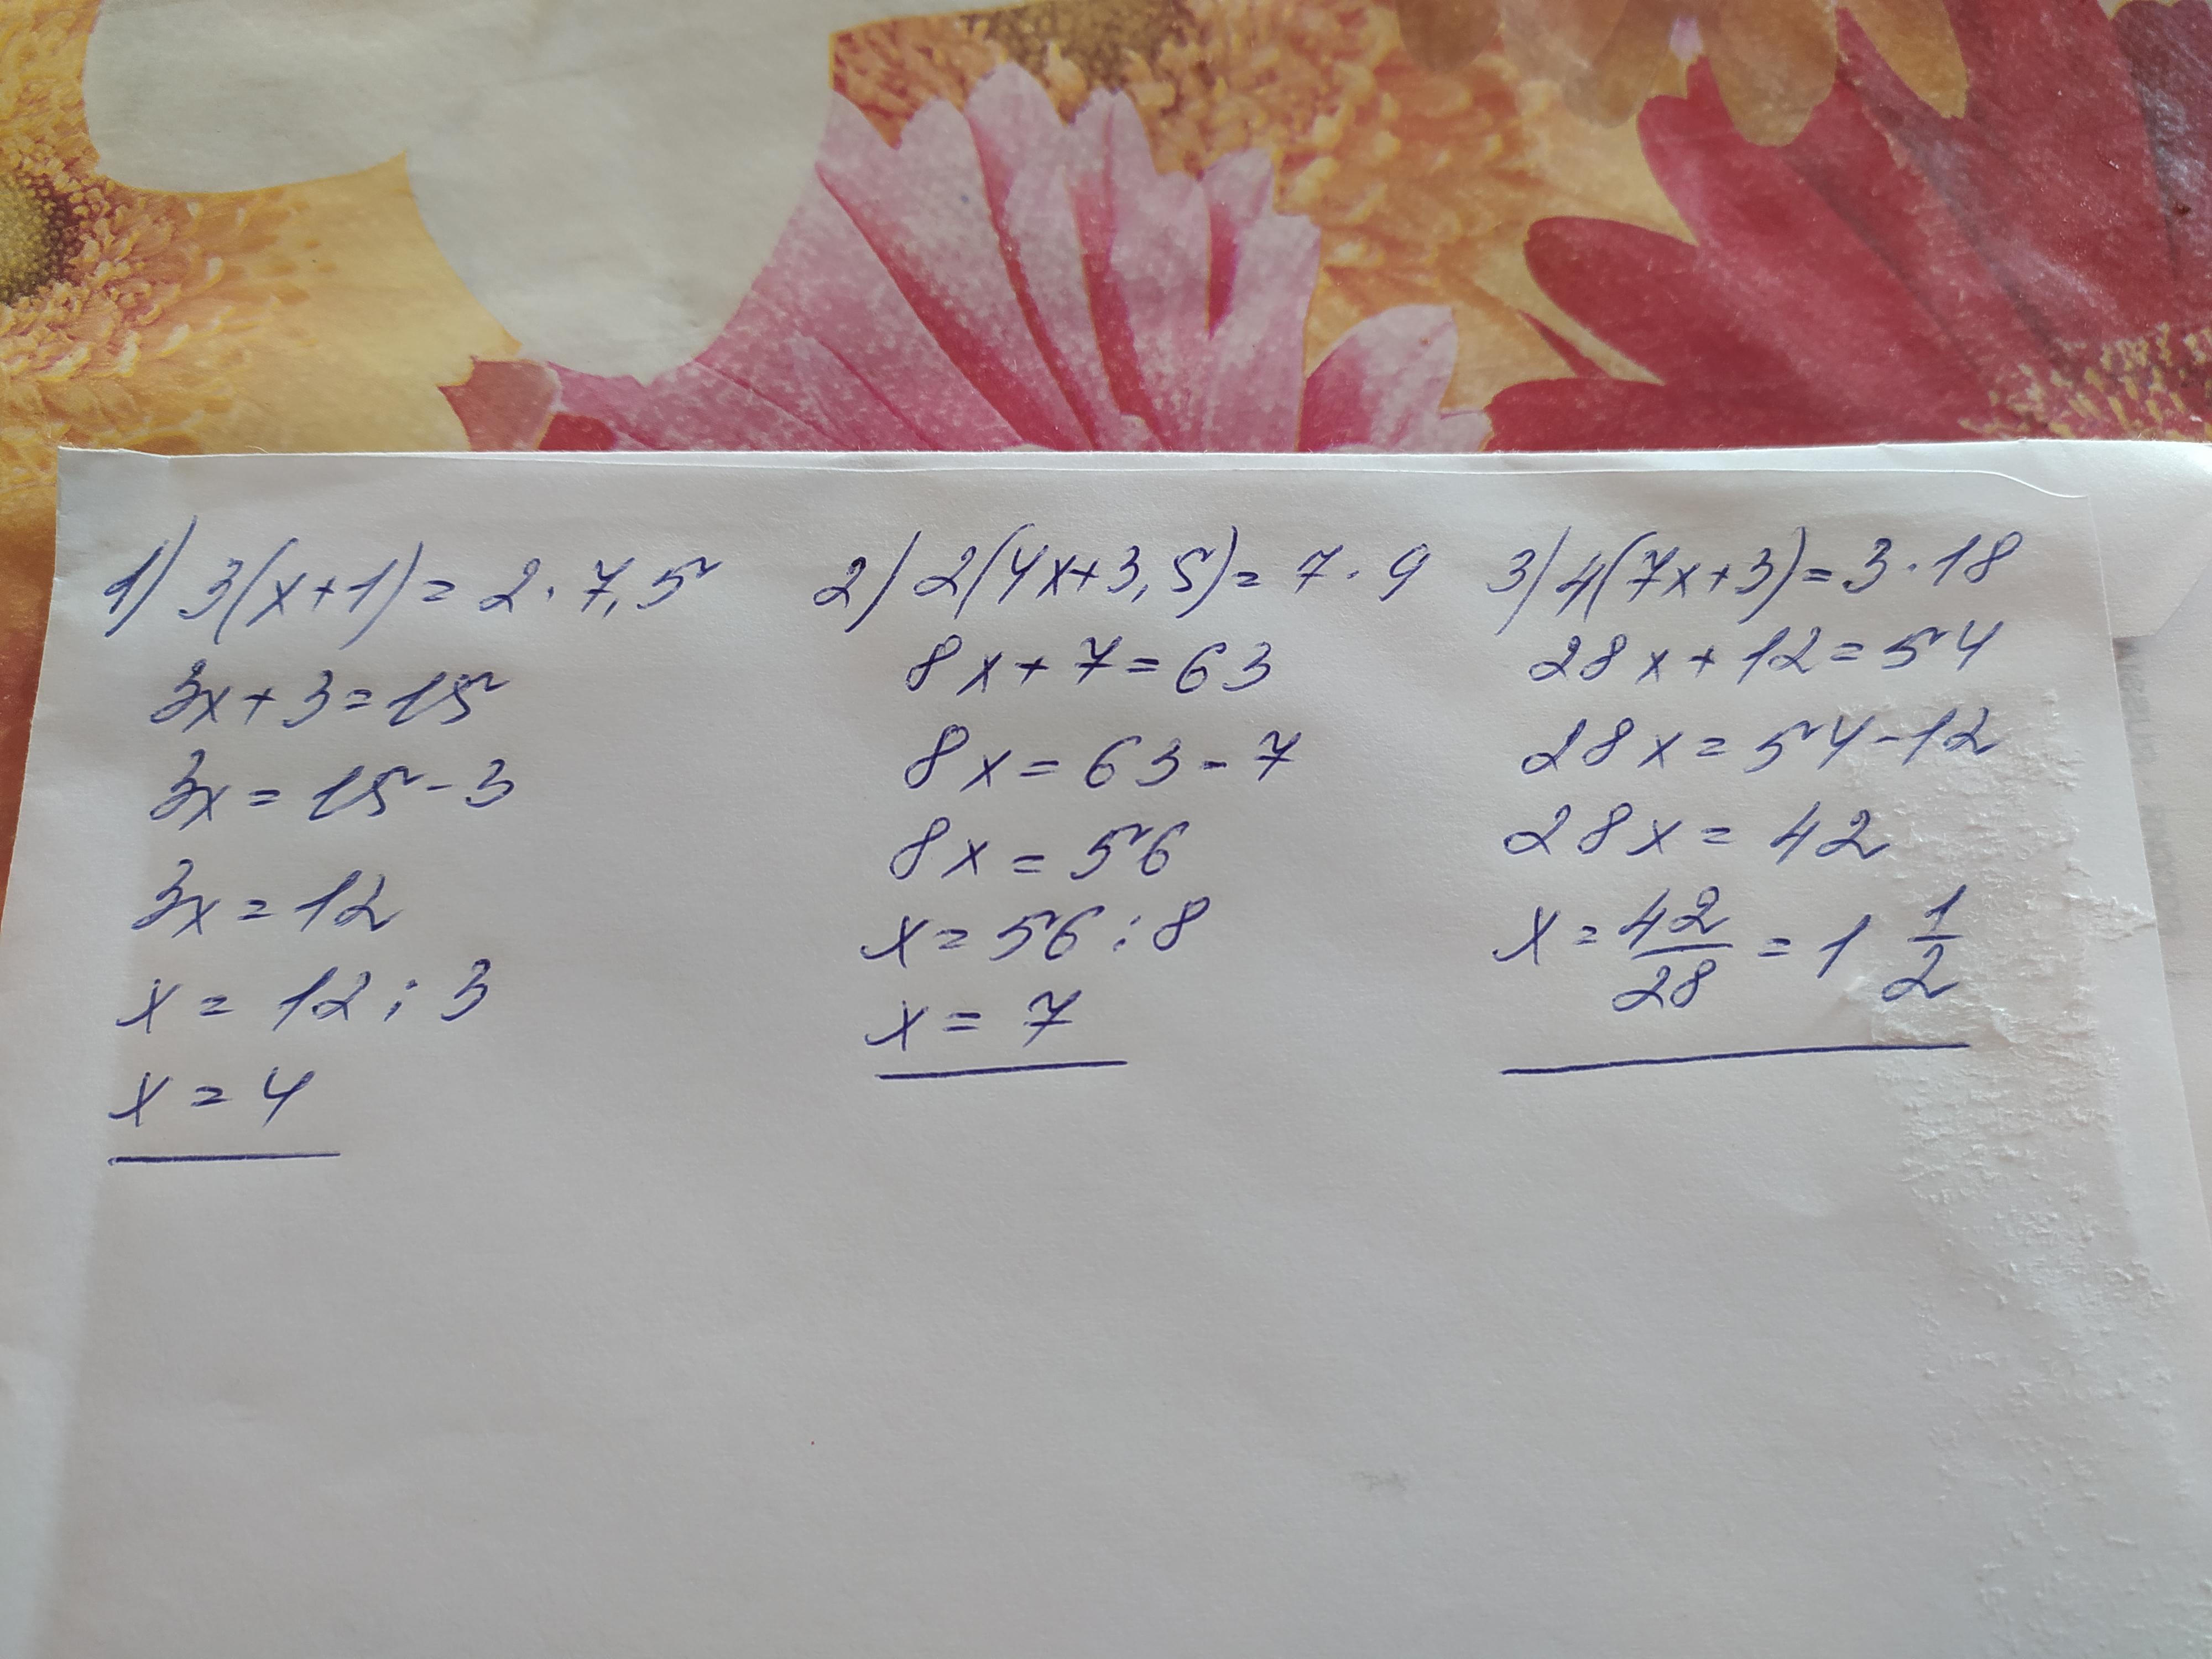 1) 3(x+1)= 2·7,5
3x+3=15
3x=15-3
3x=12
x=12:3
x=4
2) 2(4x+3,5)=7·9
8x+7=63
8x=63-7
8x=56
x=56:8
x=7
3) 4(7x+3)=3·18
28x+12=54
28x=54-12
28x=42
x=42/28=1 1/2